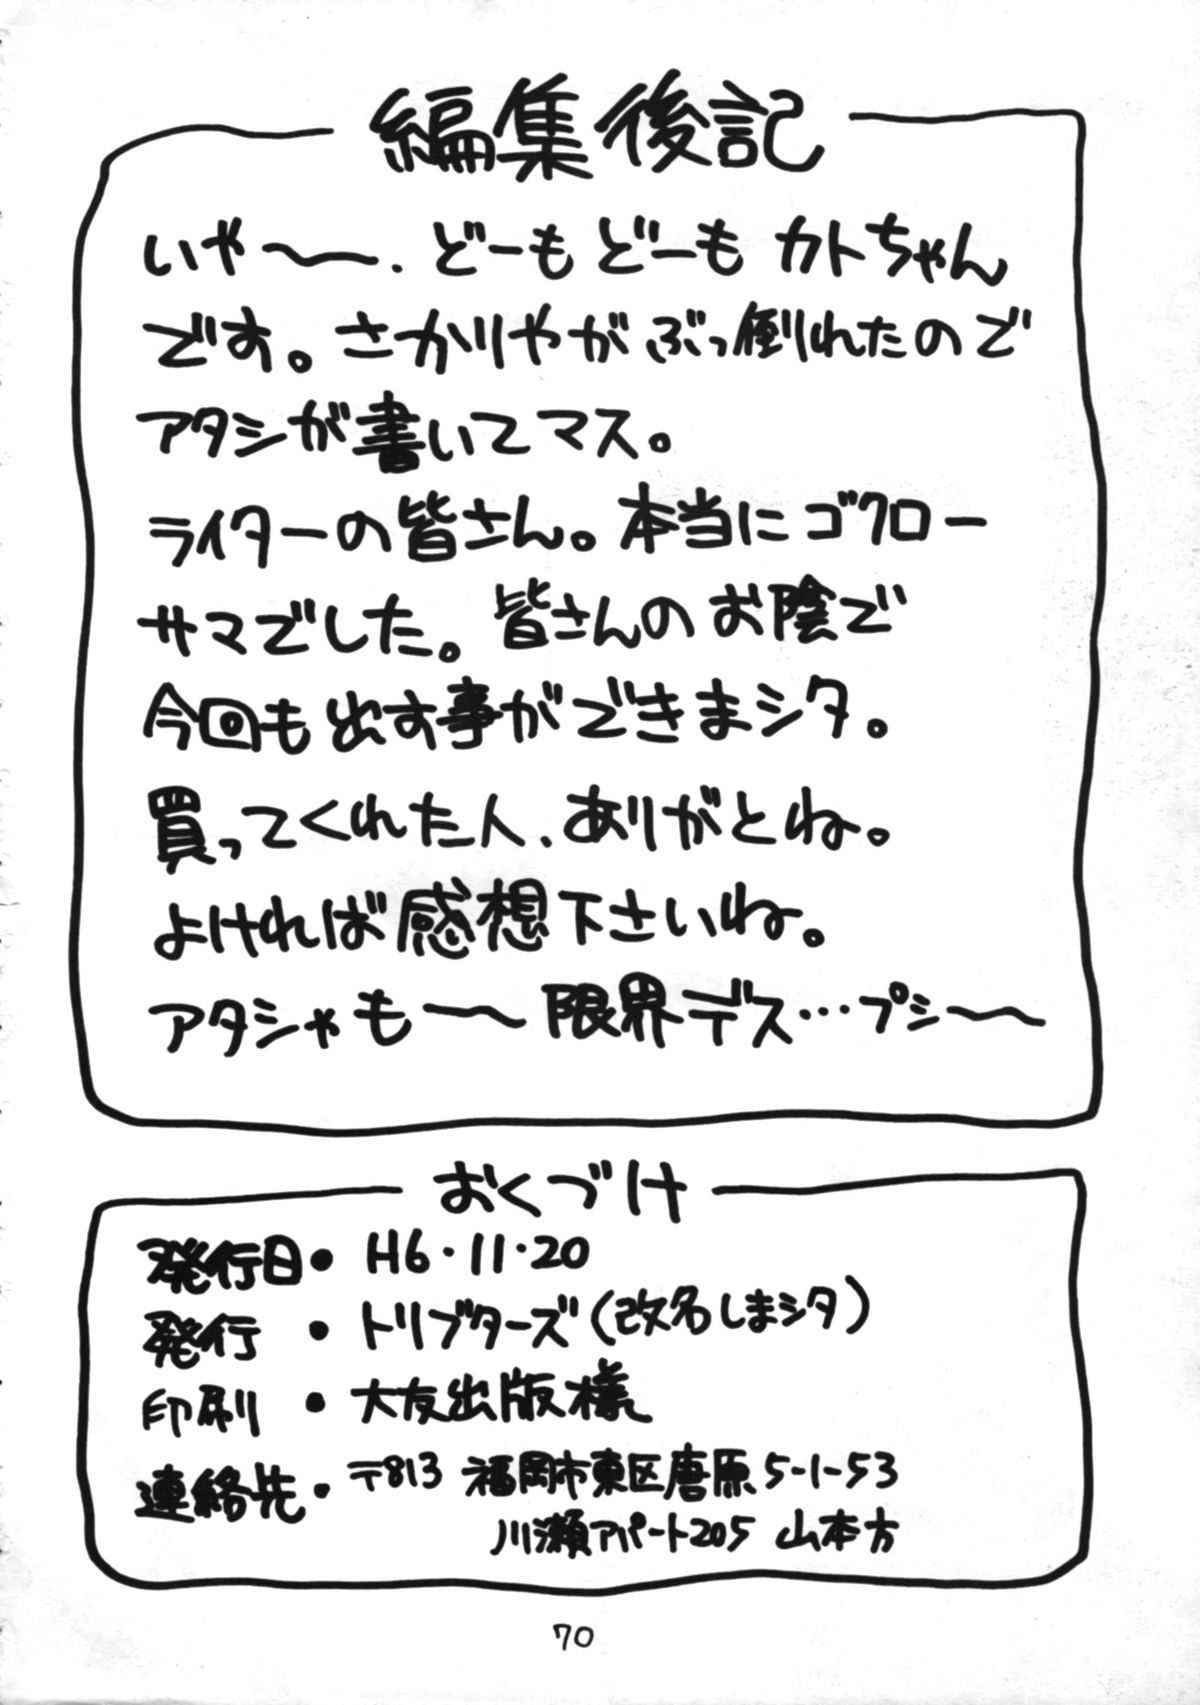 編集後記
いや〜〜. どーも どーも カトちゃん
です。さかりやが ぶっ倒れたので
アタシが書いてマス。
ライターの皆さん。本当にゴクロー
サマでした。皆さんのお陰で
今回も出す事ができまシタ。
買ってくれた人、ありがとね。
よければ感想下さいね。
アタシゃも〜〜限界デス…プシ〜〜
おくづけ
発行日・H6・11・20
発行・トリブターズ(改名しまシタ)
印刷・大友出版様
連絡先・〒813 福岡市東区唐原5-1-53
川瀬アパート205 山本方
70